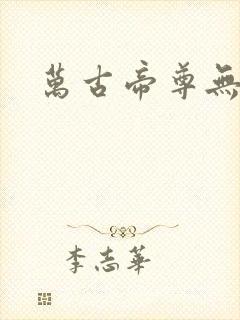 萬古帝尊無
李志華